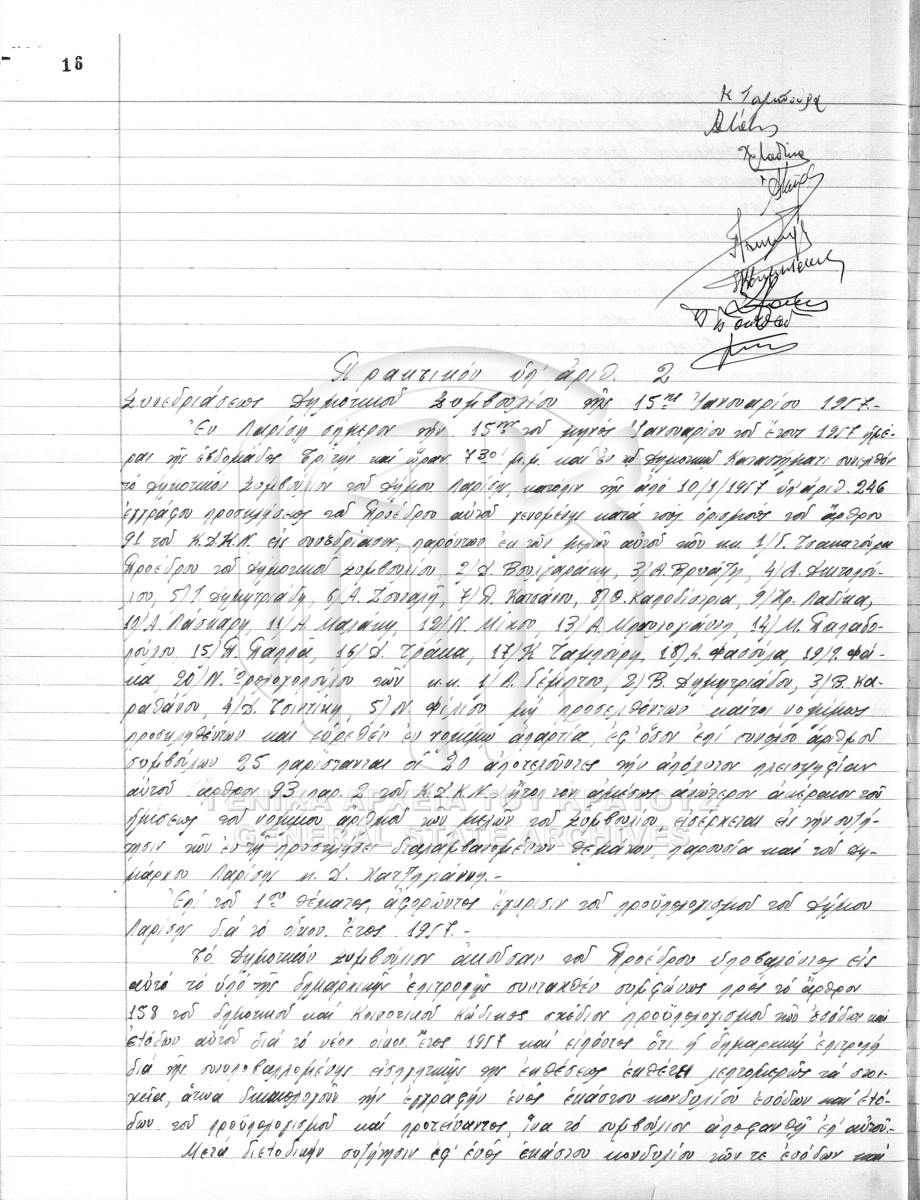 16
Κ Ταμπούρη
Πρακτικόν ὑπ' ἀριθ. 2
Συνεδριάσεως Δημοτικοῦ Συμβουλίου τῆς 15ης Ἰανουαρίου 1957.-
Ἐν Λαρίσῃ σήμερον τήν 15ην τοῦ μηνός Ἰανουαρίου τοῦ ἔτους 1957 ἡμέ-
ραν τῆς ἑβδομάδος Τρίτην καί ὥραν 730 μ.μ. καί ἐν τῷ Δημοτικῷ Καταστήματι συνελθόν
τό Δημοτικόν Συμβούλιον τοῦ Δήμου Λαρίσης, κατόπιν τῆς ἀπό 10/1/1957 ὑπ' ἀριθ. 246
ἐγγράφου προσκλήσεως τοῦ Προέδρου αὐτοῦ γενομένης κατά τούς ὁρισμούς τοῦ ἄρθρου
91 τοῦ Κ.Δ.Κ.Ν εἰς συνεδρίασιν, παρόντων ἐκ τῶν μελῶν αὐτοῦ τῶν κ.κ. 1/Γ. Τσακατούρα
Προέδρου τοῦ Δημοτικοῦ Συμβουλίου, 2/Δ. Βουλγαράκη, 3/Α. Βρυάζη, 4/Α. Δικτοπού-
λου, 5/Ι. Δημητριάδη, 6/Α. Ζουπαλῆ, 7/Π. Καπάνου, 8/Θ. Καποδίστρια, 9/Χρ. Λαδίκα,
10/Α. Λάσκαρη, 11/Α. Μαλάκη, 12/Ν. Μίχου, 13/Α. Μπουλογιάννη, 14/Μ. Παπαδο-
πούλου, 15/Π. Παππᾶ, 16/Δ. Τράκα, 17/Κ Ταμπούρη, 18/Α. Φασούλα, 19/Ι. Φά-
κα 20/Ν. τῶν κ.κ. 1/Α. Δεμίρτου, 2/Β. Δημητριάδου, 3/Β. Κα-
ραθάνου, 4/Δ. Τσιντίκη, 5/Ν. Φίλιου μή προσελθόντων καίτοι νομίμως
προσκληθέντων καί εὑρεθέν ἐν νομίμῳ ἀπαρτίᾳ, ἐφ' ὅσον ἐπί συνόλου ἀριθμοῦ
συμβούλων 25 παρίστανται οἱ 20 ἀποτελοῦντες τήν ἀπόλυτον πλειοψηφίαν
αὐτοῦ ἄρθρον 93 παρ. 2 τοῦ Κ.Δ.Κ.Ν. ἤτοι τόν ἀμέσως ἀνώτερον ἀκέραιον τοῦ
ἡμίσεως τοῦ νομίμου ἀριθμοῦ τῶν μελῶν τοῦ Συμβουλίου εἰσέρχεται εἰς τήν συζή-
τησιν τῶν ἐν τῇ προσκλήσει διαλαμβανομένων θεμάτων, παρουσίᾳ καί τοῦ Δη-
μάρχου Λαρίσης κ. Δ. Χατζηγιάννη.-
Ἐπί τοῦ 1ου θέματος, ἀφορῶντος ἔγκρισιν τοῦ προϋπολογισμοῦ τοῦ Δήμου
Λαρίσης διά τό οἰκον. ἔτος 1957.-
Τό Δημοτικόν Συμβούλιον ἀκοῦσαν τοῦ Προέδρου ὑποβαλόντος εἰς
αὐτό τό ὑπό τῆς δημαρχικῆς ἐπιτροπῆς συνταχθέν συμφώνως πρός τό ἄρθρον
158 τοῦ Δημοτικοῦ καί Κοινοτικοῦ Κώδικος σχέδιον προϋπολογισμοῦ τῶν ἐσόδων καί
ἐξόδων αὐτοῦ διά τό νέον οἰκον. ἔτος 1957 καί εἰπόντος ὅτι ἡ δημαρχική ἐπιτροπή
διά τῆς συνυποβαλλομένης εἰσηγητικῆς της ἐκθέσεως ἐκθέτει λεπτομερῶς τά στοι-
χεῖα, ἅτινα δικαιολογοῦν τήν ἐγγραφήν ἑνός ἑκάστου κονδυλίου ἐσόδων καί ἐξό-
δων τοῦ προϋπολογισμοῦ καί προτείναντος, ἵνα τό συμβούλιον ἀποφανθῇ ἐπ' αὐτοῦ.-
Μετά διεξοδικήν συζήτησιν ἐφ' ἑνός ἑκάστου κονδυλίου τῶν τε ἐσόδων καί
ΓΕΝΙΚΑ ΑΡΧΕΙΑ ΤΟΥ ΚΡΑΤΟΥΣ
GENERAL STATE ARCHIVES